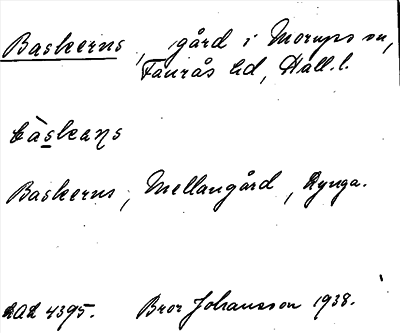 Baskerns, gård i Morups sn,
Faurås hd, Hall.l.
Baskerns, Mellangård, Rynga.
4395. Bror Johansson 1938.